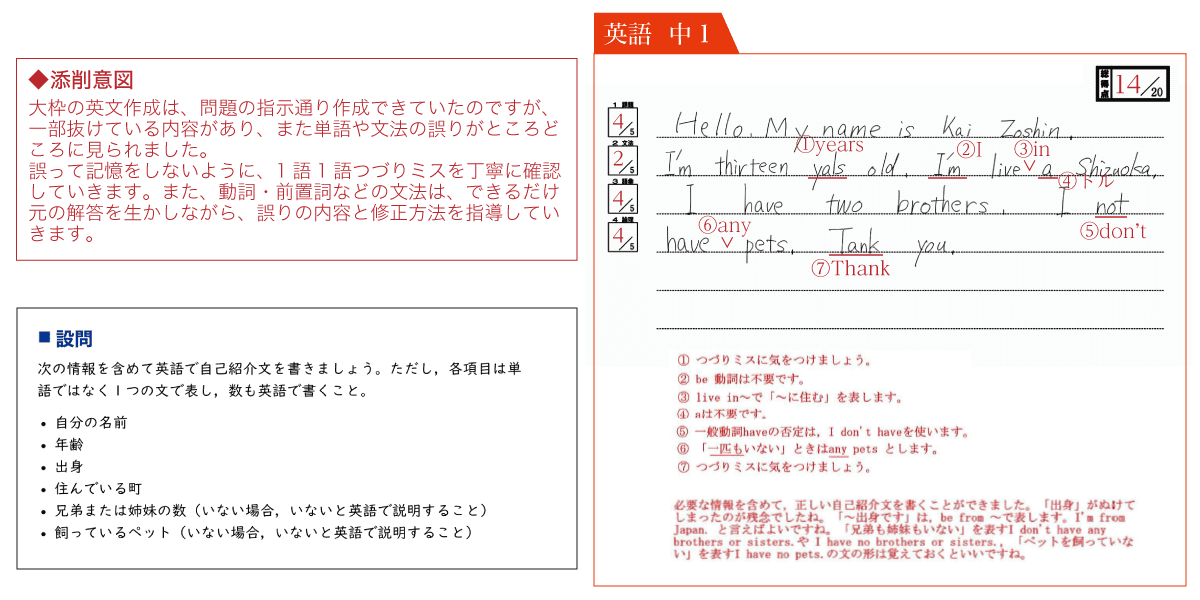 ◆添削意図
大枠の英文作成は、問題の指示通り作成できていたのですが、
一部抜けている内容があり、また単語や文法の誤りがところど
ころに見られました。
誤って記憶をしないように、1語1語つづりミスを丁寧に確認
していきます。また、動詞・前置詞などの文法は、できるだけ
元の解答を生かしながら、誤りの内容と修正方法を指導してい
きます。
■ 設問
次の情報を含めて英語で自己紹介文を書きましょう。ただし，各項目は単
語ではなく1つの文で表し，数も英語で書くこと。
• 自分の名前
• 年齢
• 出身
• 住んでいる町
• 兄弟または姉妹の数（いない場合，いないと英語で説明すること）
• 飼っているペット（いない場合，いないと英語で説明すること）
英語 中1
総得点 14/20
1 課題
4/5
2 文法
2/5
3 語彙
4/5
4 論理
4/5
Hello. My name is Kai Zoshin.
①years ②I ③in
I'm thirteen yals old. I'm live a Shizuoka.
④トル
I have two brothers. I not
⑥any ⑤don't
have pets. Tank you.
⑦Thank
① つづりミスに気をつけましょう。
② be 動詞は不要です。
③ live in～で「～に住む」を表します。
④ aは不要です。
⑤ 一般動詞haveの否定は，I don't haveを使います。
⑥ 「一匹もいない」ときはany pets とします。
⑦ つづりミスに気をつけましょう。
必要な情報を含めて，正しい自己紹介文を書くことができました。「出身」がぬけて
しまったのが残念でしたね。「～出身です」は，be from ～で表します。I'm from
Japan. と言えばよいですね。「兄弟も姉妹もいない」を表すI don't have any
brothers or sisters.や I have no brothers or sisters.，「ペットを飼っていな
い」を表すI have no pets.の文の形は覚えておくといいですね。